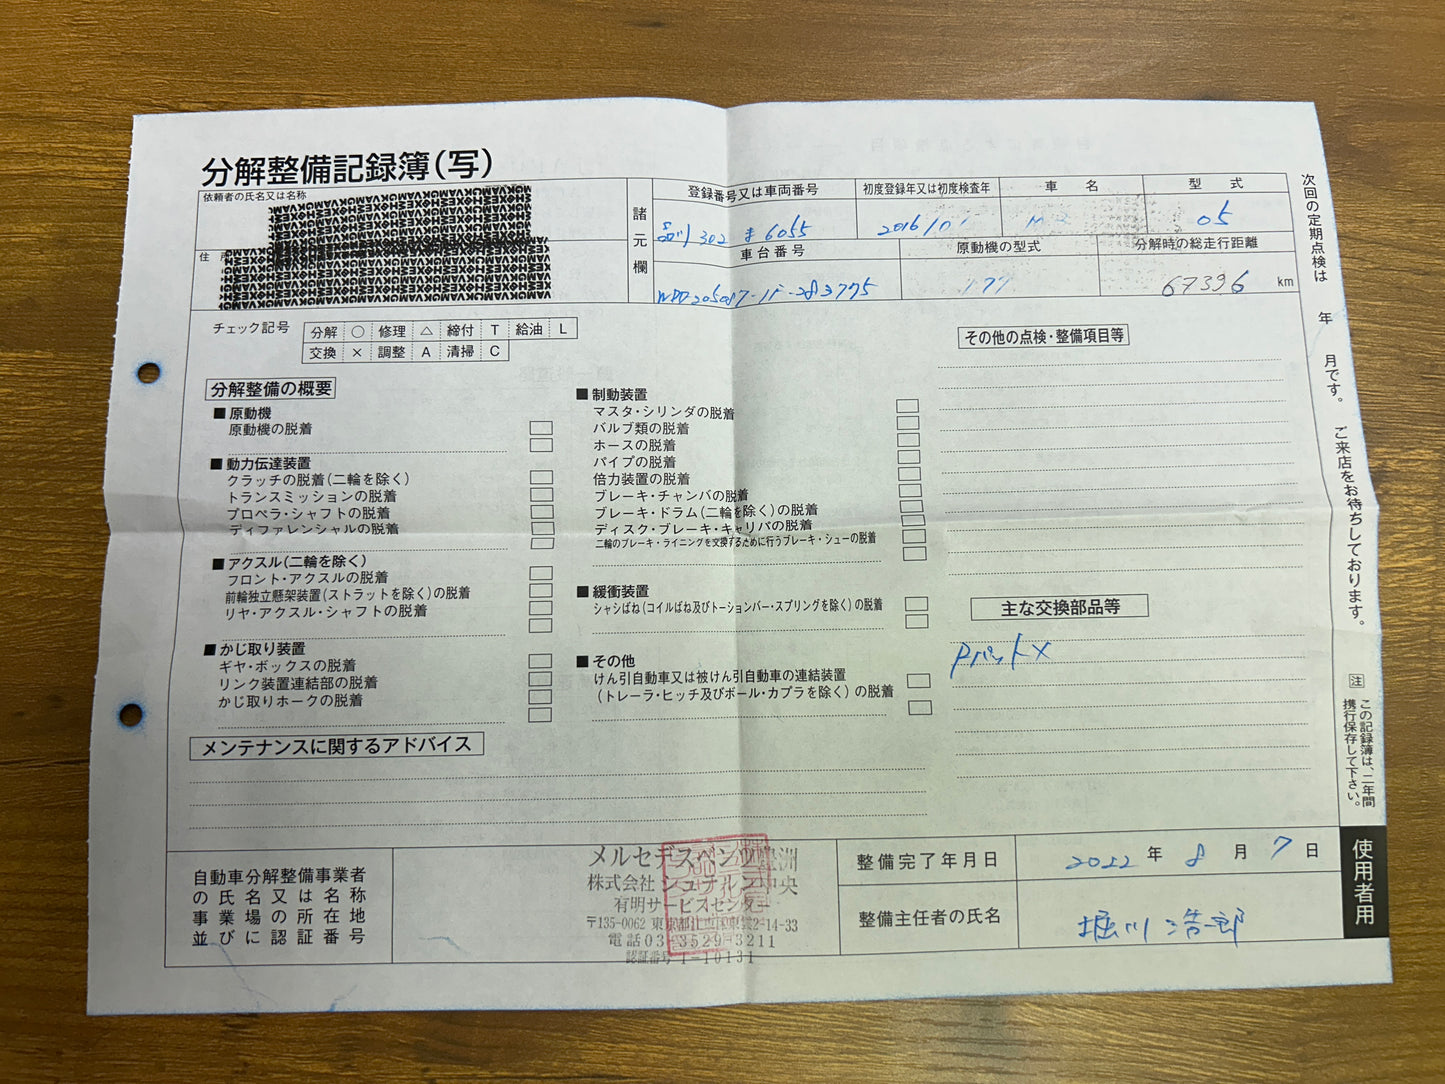 分解整備記録簿(写)
依頼者の氏名又は名称
住
諸元欄
登録番号又は車両番号
初度登録年又は初度検査年
車 名
型 式
品川 302 ま 6055
2016/10
05
車台番号
原動機の型式
分解時の総走行距離
67396 km
チェック記号
分解 ○ 修理 △ 締付 T 給油 L
交換 × 調整 A 清掃 C
分解整備の概要
■原動機
原動機の脱着
■動力伝達装置
クラッチの脱着(二輪を除く)
トランスミッションの脱着
プロペラ・シャフトの脱着
ディファレンシャルの脱着
■アクスル(二輪を除く)
フロント・アクスルの脱着
前輪独立懸架装置(ストラットを除く)の脱着
リヤ・アクスル・シャフトの脱着
■かじ取り装置
ギヤ・ボックスの脱着
リンク装置連結部の脱着
かじ取りホークの脱着
■制動装置
マスタ・シリンダの脱着
バルブ類の脱着
ホースの脱着
パイプの脱着
倍力装置の脱着
ブレーキ・チャンバの脱着
ブレーキ・ドラム(二輪を除く)の脱着
ディスク・ブレーキ・キャリパの脱着
二輪のブレーキ・ライニングを交換するために行うブレーキ・シューの脱着
■緩衝装置
シャシばね(コイルばね及びトーションバー・スプリングを除く)の脱着
■その他
けん引自動車又は被けん引自動車の連結装置
(トレーラ・ヒッチ及びボール・カプラを除く)の脱着
その他の点検・整備項目等
主な交換部品等
Pパット×
メンテナンスに関するアドバイス
自動車分解整備事業者
の氏名又は名称
事業場の所在地
並びに認証番号
メルセデスベンツ豊洲
株式会社シュテルン中央
有明サービスセンター
〒135-0062 東京都江東区東雲2-14-33
電話03-3529-3211
認証番号 1-10131
整備完了年月日
2022 年 8 月 7 日
整備主任者の氏名
堀川 浩一郎
次回の定期点検は 年 月です。 ご来店をお待ちしております。
注 この記録簿は、二年間
携行保存して下さい。
使用者用